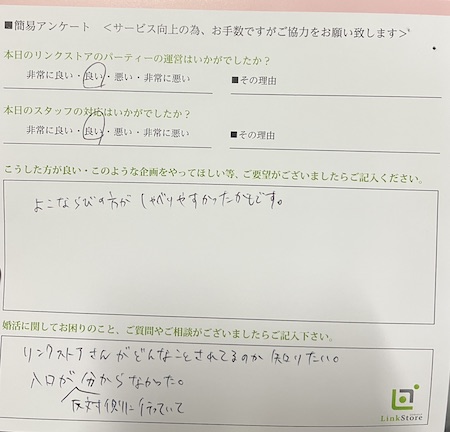 ■簡易アンケート ＜サービス向上の為、お手数ですがご協力をお願い致します＞
本日のリンクストアのパーティーの運営はいかがでしたか？
非常に良い・良い・悪い・非常に悪い ■その理由
本日のスタッフの対応はいかがでしたか？
非常に良い・良い・悪い・非常に悪い ■その理由
こうした方が良い・このような企画をやってほしい等、ご要望がございましたらご記入ください。
よこならびの方が しゃべりやすかったかもです。
婚活に関してお困りのこと、ご質問やご相談がございましたらご記入下さい。
リンクストアさんがどんなことされてるのか 知りたい。
入口が 分からなかった。
反対側に行っていて
LinkStore